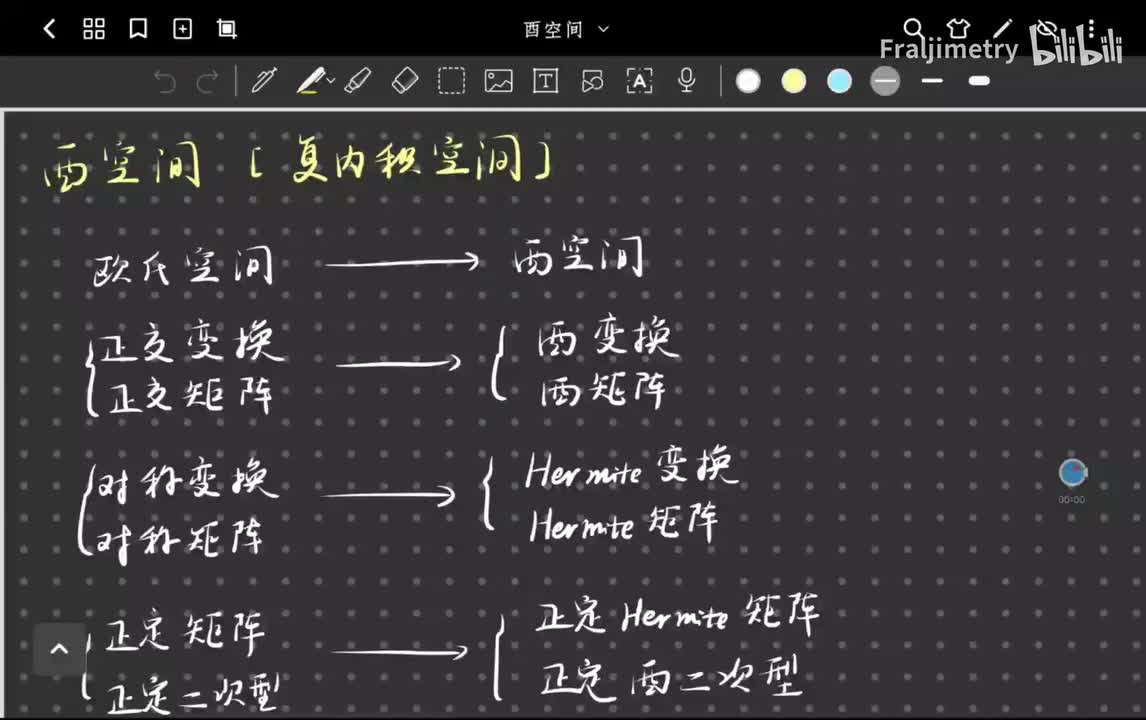 酉空间
Fraljimetry bilibili
T A
酉空间 [复内积空间]
欧氏空间 → 酉空间
正交变换 → 酉变换
正交矩阵 酉矩阵
对称变换 → Hermite 变换
对称矩阵 Hermite 矩阵
00:00
正定矩阵 → 正定 Hermite 矩阵
正定二次型 正定酉二次型